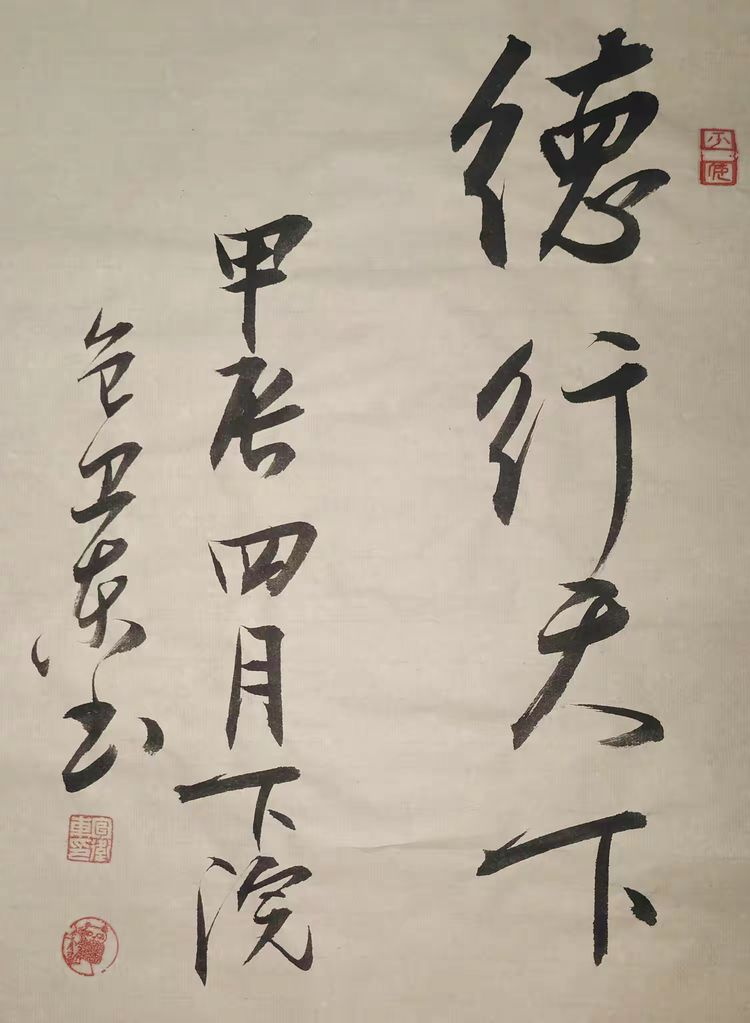 德行天下
甲辰四月下浣
卫东书